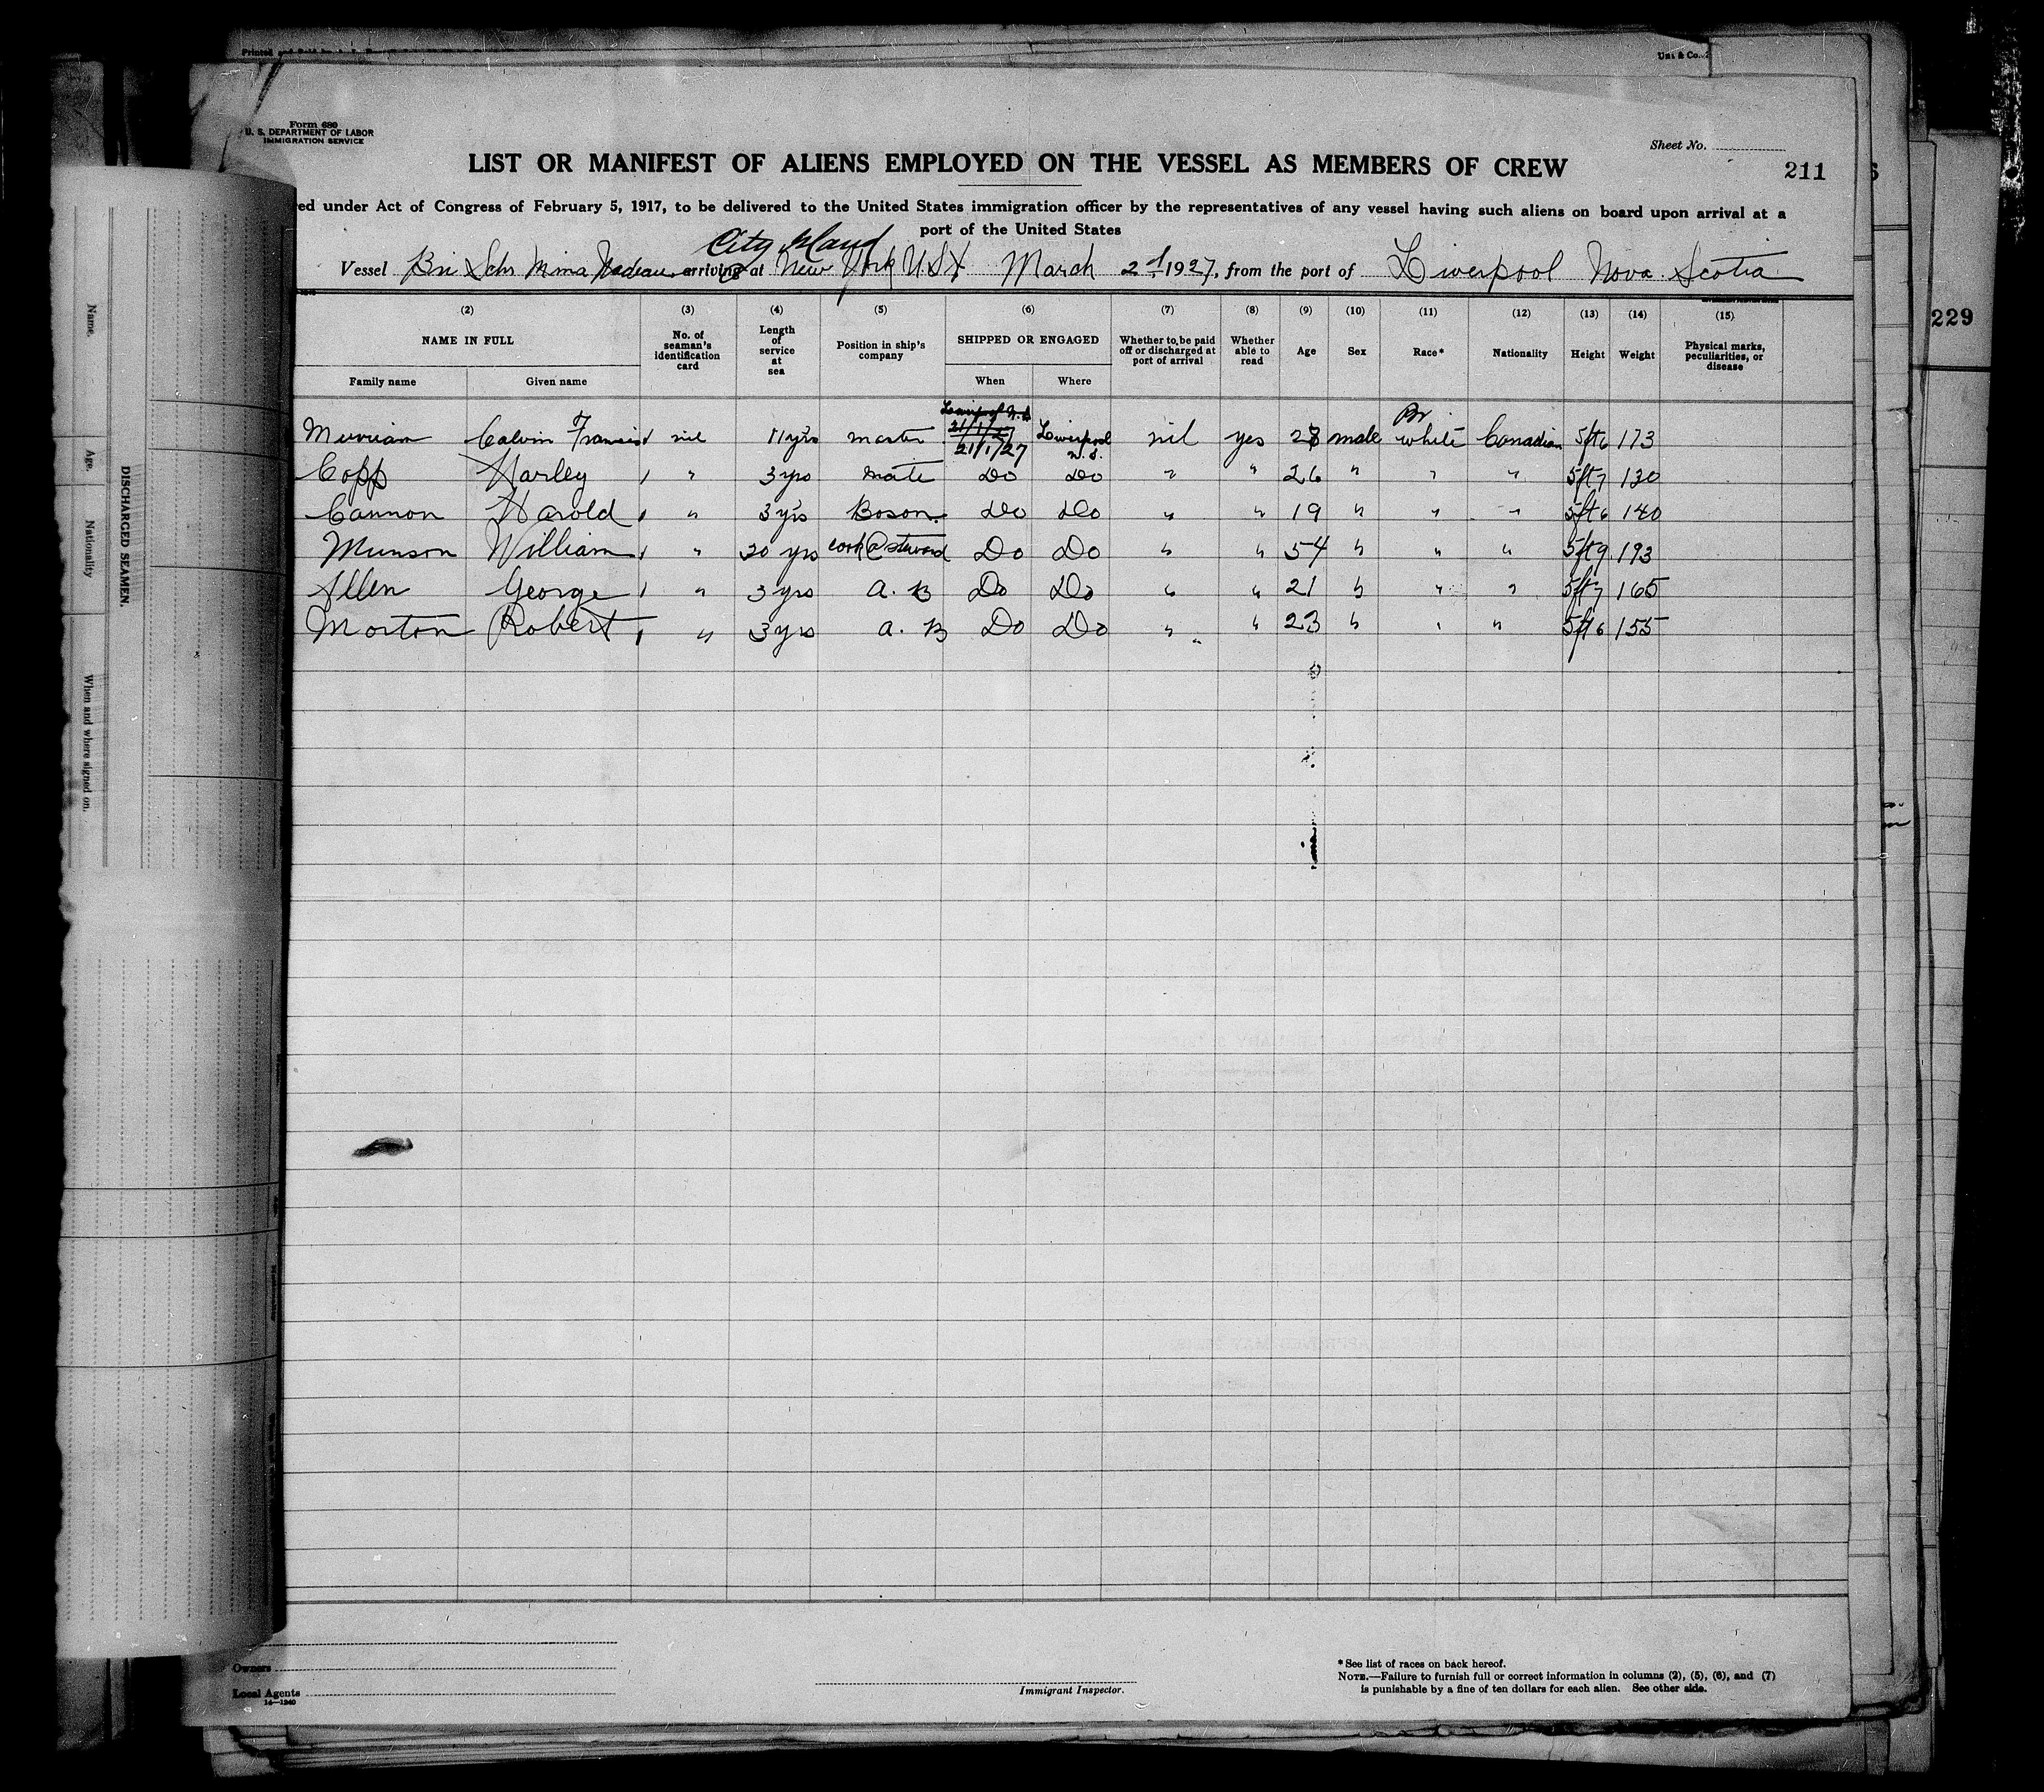 Form 680
U. S. DEPARTMENT OF LABOR
IMMIGRATION SERVICE
Sheet No.
LIST OR MANIFEST OF ALIENS EMPLOYED ON THE VESSEL AS MEMBERS OF CREW
211
ed under Act of Congress of February 5, 1917, to be delivered to the United States immigration officer by the representatives of any vessel having such aliens on board upon arrival at a
port of the United States
City Island
Vessel Bri Schr Mina Nadeau arriving at New York USA March 2 1927, from the port of Liverpool Nova Scotia
(2) (3) (4) (5) (6) (7) (8) (9) (10) (11) (12) (13) (14) (15)
NAME IN FULL No. of seaman's identification card Length of service at sea Position in ship's company SHIPPED OR ENGAGED Whether to be paid off or discharged at port of arrival Whether able to read Age Sex Race* Nationality Height Weight Physical marks, peculiarities, or disease
Family name Given name When Where
Liverpool N.S. Br
21/1/27
Merriam Calvin Francis nil 11 yrs master 21/1/27 Liverpool N.S. nil yes male white Canadian 5ft6 173
Copp Harley " 3 yrs mate Do Do " " 26 " " " 5ft7 130
Cannon Harold " 3 yrs Boson Do Do " " 19 " " " 5ft6 140
Munson William " 20 yrs cook & steward Do Do " " 54 " " " 5ft9 193
Allen George " 3 yrs A. B Do Do " " 21 " " " 5ft7 165
Morton Robert " 3 yrs A. B Do Do " " 23 " " " 5ft6 155
Owners
Local Agents
14—1240
Immigrant Inspector.
* See list of races on back hereof.
NOTE.—Failure to furnish full or correct information in columns (2), (5), (6), and (7)
is punishable by a fine of ten dollars for each alien. See other side.
DISCHARGED SEAMEN.
Name.
Age.
Nationality
When and where signed on.
229